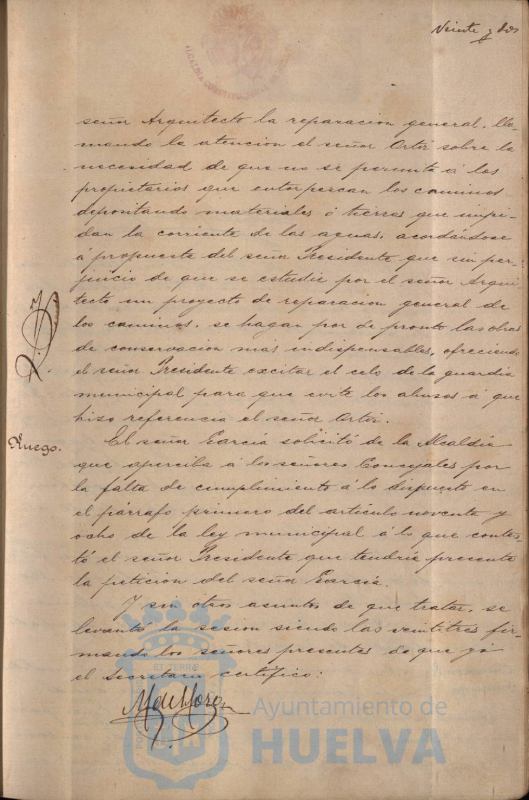 Veinte y dos
señor Arquitecto la reparacion general, lla-
mando la atencion el señor Ortiz sobre la
necesidad de que no se permita á los
propietarios que entorpescan los caminos
depositando materiales ó tierras que impi-
dan la corriente de las aguas, acordándose
á propuesta del señor Presidente que sin per-
juicio de que se estudie por el señor Arqui-
tecto un proyecto de reparacion general de
los caminos, se hagan por de pronto las obras
de conservacion más indispensables, ofreciendo
el señor Presidente excitar el celo de la guardia
municipal para que evite los abusos á que
hizo referencia el señor Ortiz.
Ruego.
El señor García solicitó de la Alcaldía
que aperciba á los señores Concejales por
la falta de cumplimiento á lo dispuesto en
el párrafo primero del articulo noventa y
ocho de la ley municipal á lo que contes-
tó el señor Presidente que tendría presente
la peticion del señor García.
Y sin otros asuntos de que tratar, se
levantó la sesion siendo las veintitres fir-
mando los señores presentes de que yo
el Secretario certifico:
Ayuntamiento de
HUELVA